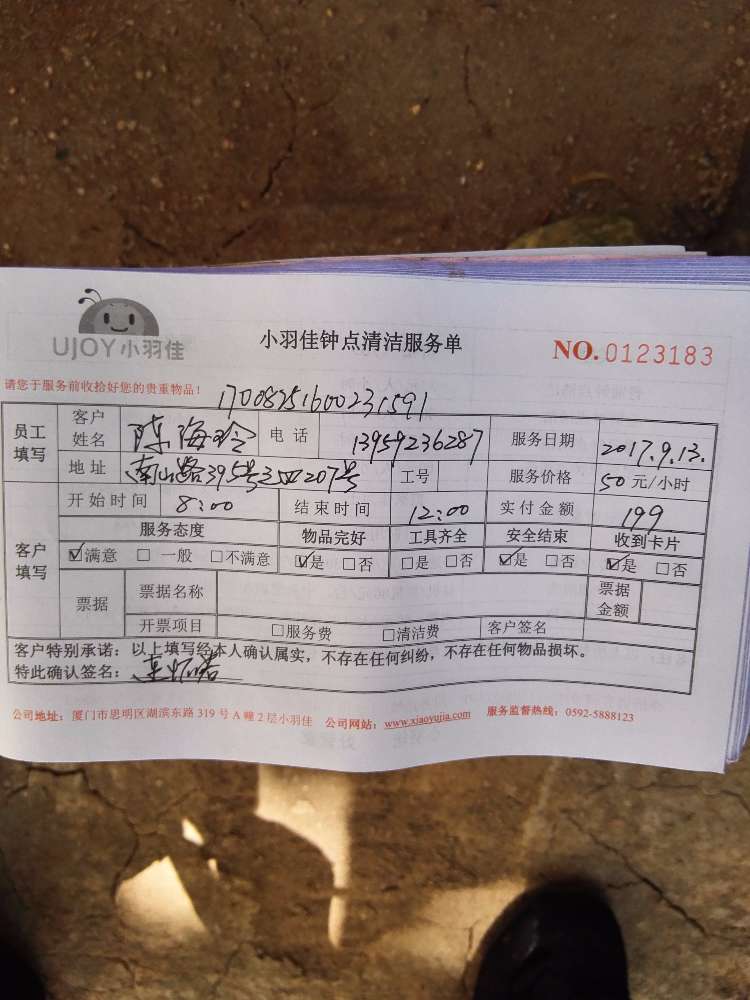 UJOY小羽佳
小羽佳钟点清洁服务单
NO.0123183
请您于服务前收拾好您的贵重物品!
1700825160023 1591
员工填写 客户姓名 陈海玲 电话 13959236287 服务日期 2017.9.13.
地址 南山路395号 207号 工号 服务价格 50元/小时
客户填写 开始时间 8:00 结束时间 12:00 实付金额 199
服务态度 物品完好 工具齐全 安全结束 收到卡片
☑满意 □一般 □不满意 ☑是 □否 □是 □否 ☑是 □否 ☑是 □否
票据 票据名称 票据金额
开票项目 □服务费 □清洁费 客户签名
客户特别承诺:以上填写经本人确认属实,不存在任何纠纷,不存在任何物品损坏。
特此确认签名:
公司地址:厦门市思明区湖滨东路319号A幢2层小羽佳 公司网站:www.xiaoyujia.com 服务监督热线:0592-5888123